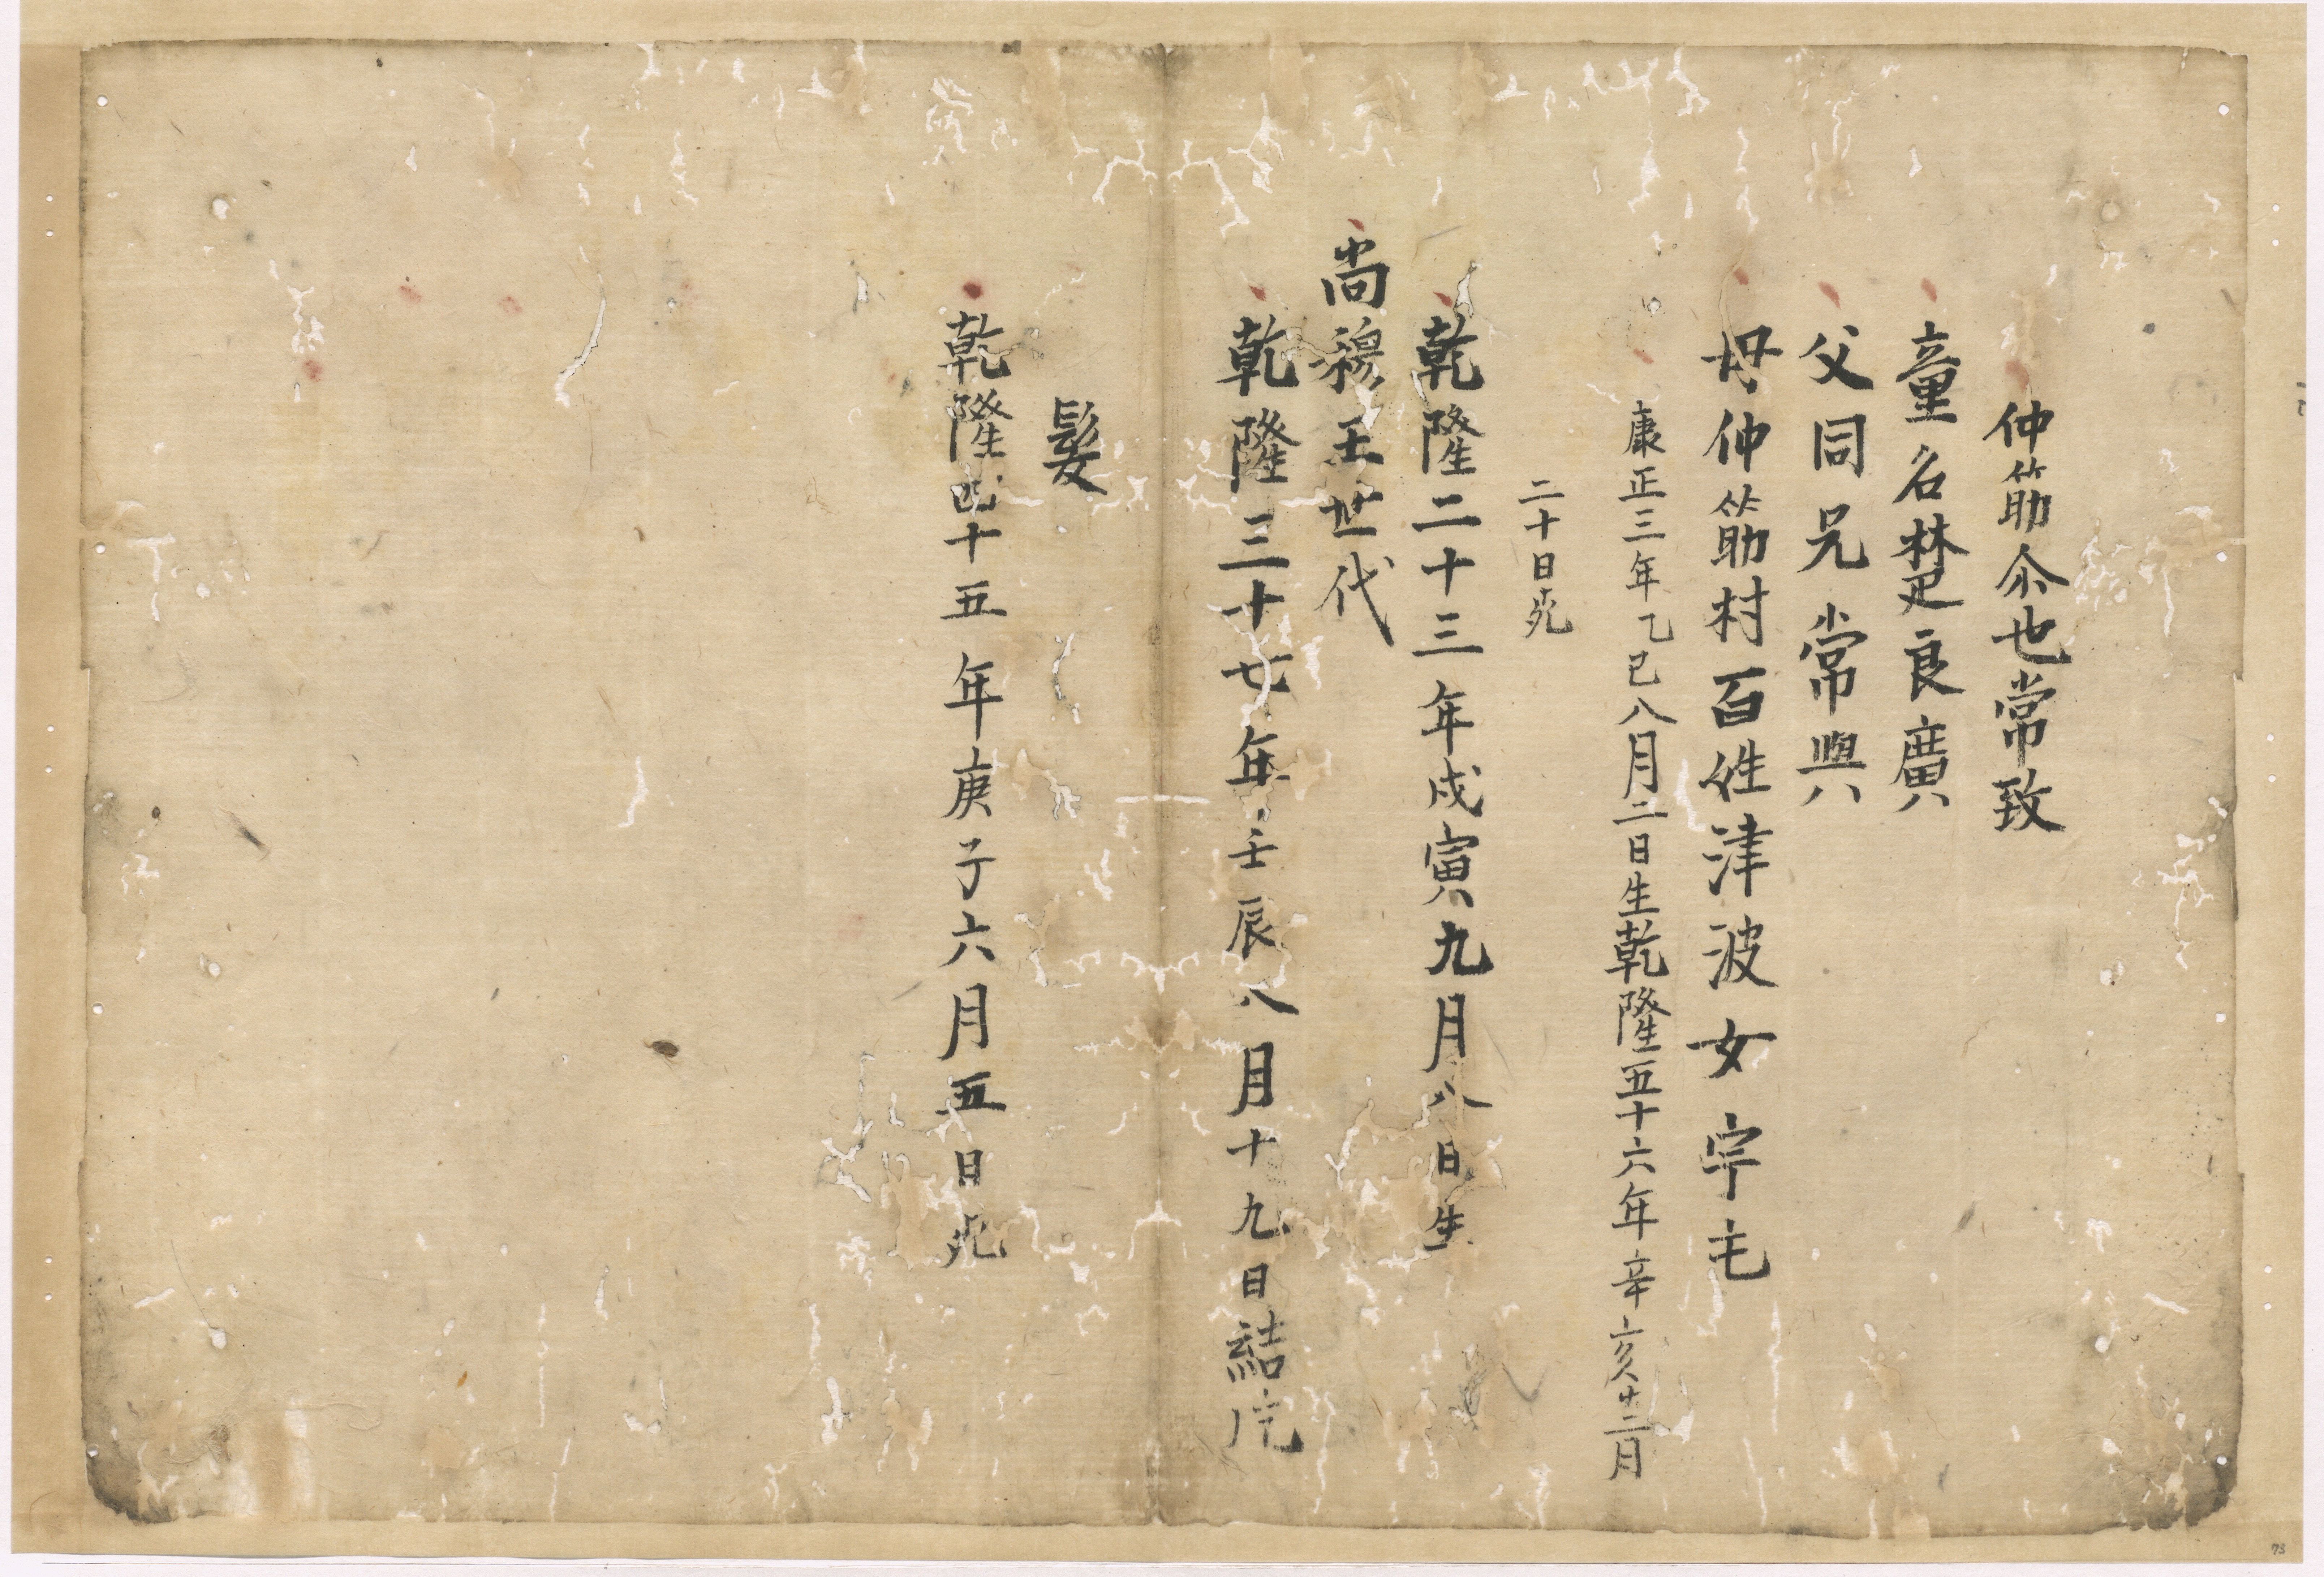 仲筋尒也常致
童名楚良廣
父同兄常與
母仲筋村百姓津波女宇毛
康正三年乙巳八月二日生乾隆五十六年辛亥十二月
二十日死
乾隆二十三年戊寅九月八日生
尚穆王世代
乾隆三十七年壬辰八月十九日結
髪
乾隆四十五年庚子六月五日死
73